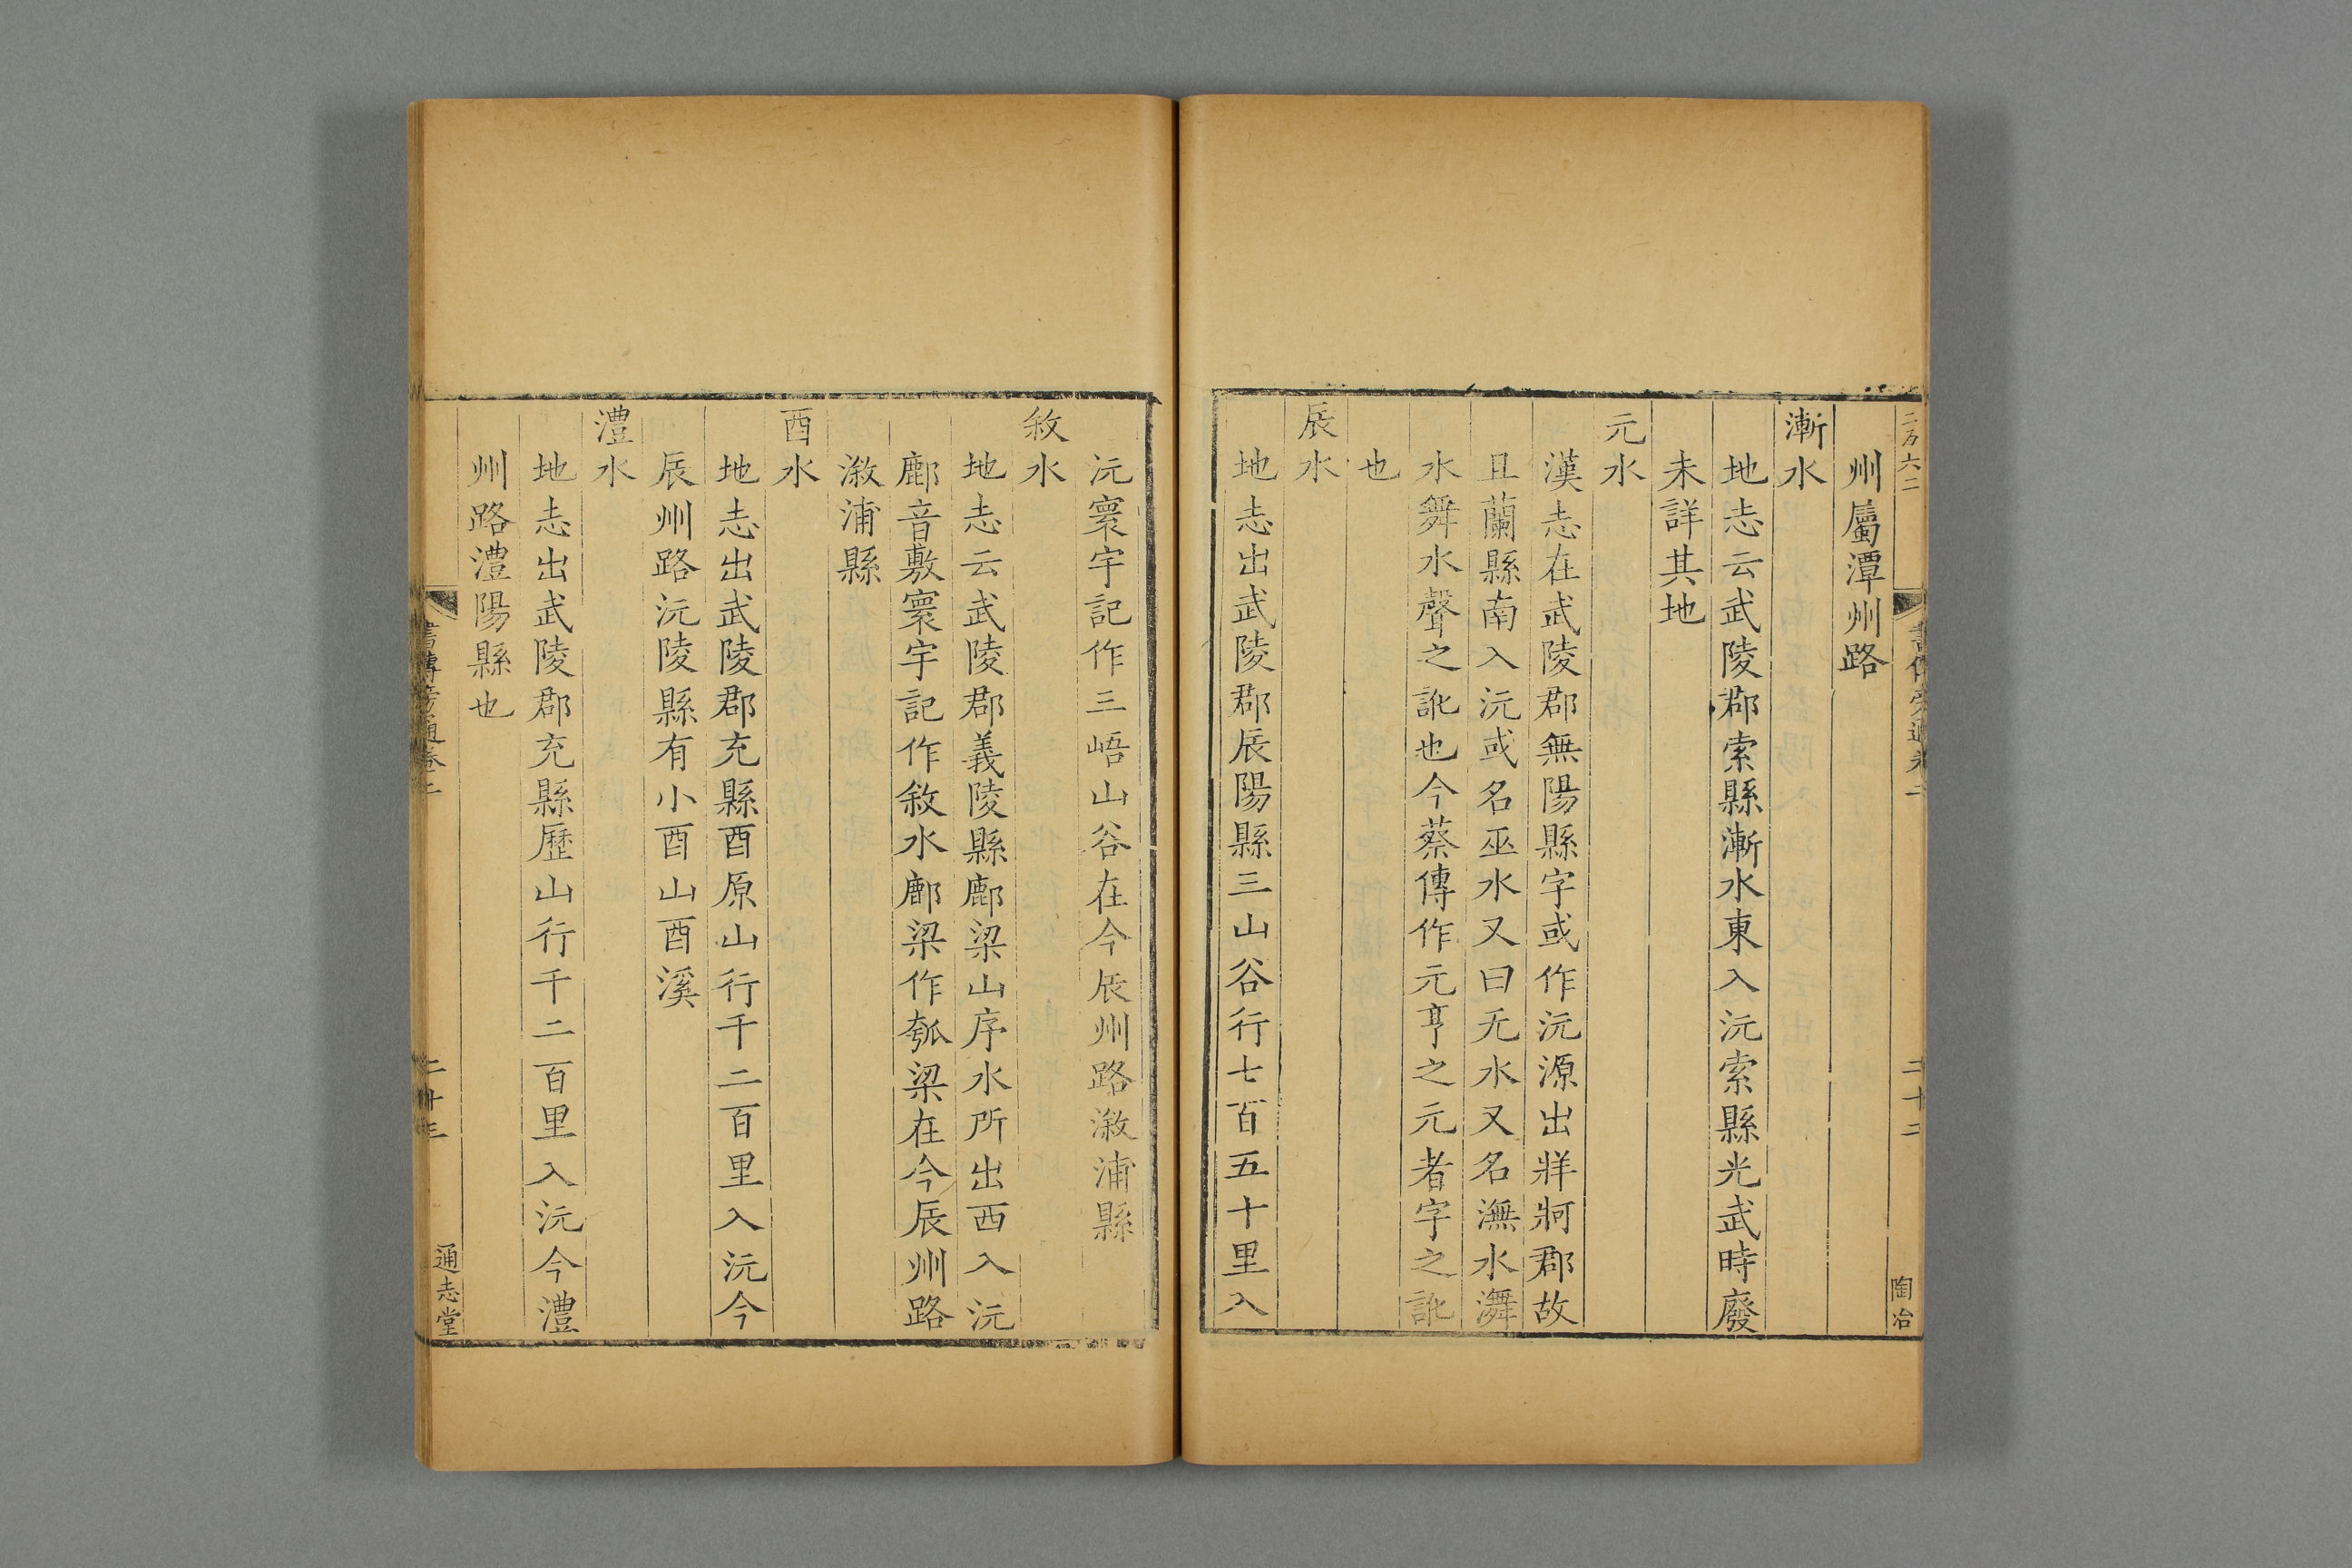 二百六二
書傳旁通卷二
二十二
陶冶
州屬潭州路
漸水
地志云武陵郡索縣漸水東入沅索縣光武時廢
未詳其地
元水
漢志在武陵郡無陽縣字或作沅源出牂牁郡故
且蘭縣南入沅或名巫水又曰无水又名潕水㵲
水舞水聲之訛也今蔡傳作元亨之元者字之訛
也
辰水
地志出武陵郡辰陽縣三山谷行七百五十里入
沅寰宇記作三峿山谷在今辰州路漵浦縣
敘水
地志云武陵郡義陵縣鄜梁山序水所出西入沅
鄜音敷寰宇記作敘水鄜梁作瓠梁在今辰州路
漵浦縣
酉水
地志出武陵郡充縣酉原山行千二百里入沅今
辰州路沅陵縣有小酉山酉溪
澧水
地志出武陵郡充縣歷山行千二百里入沅今澧
州路澧陽縣也
書傳旁通卷二
二十三
通志堂